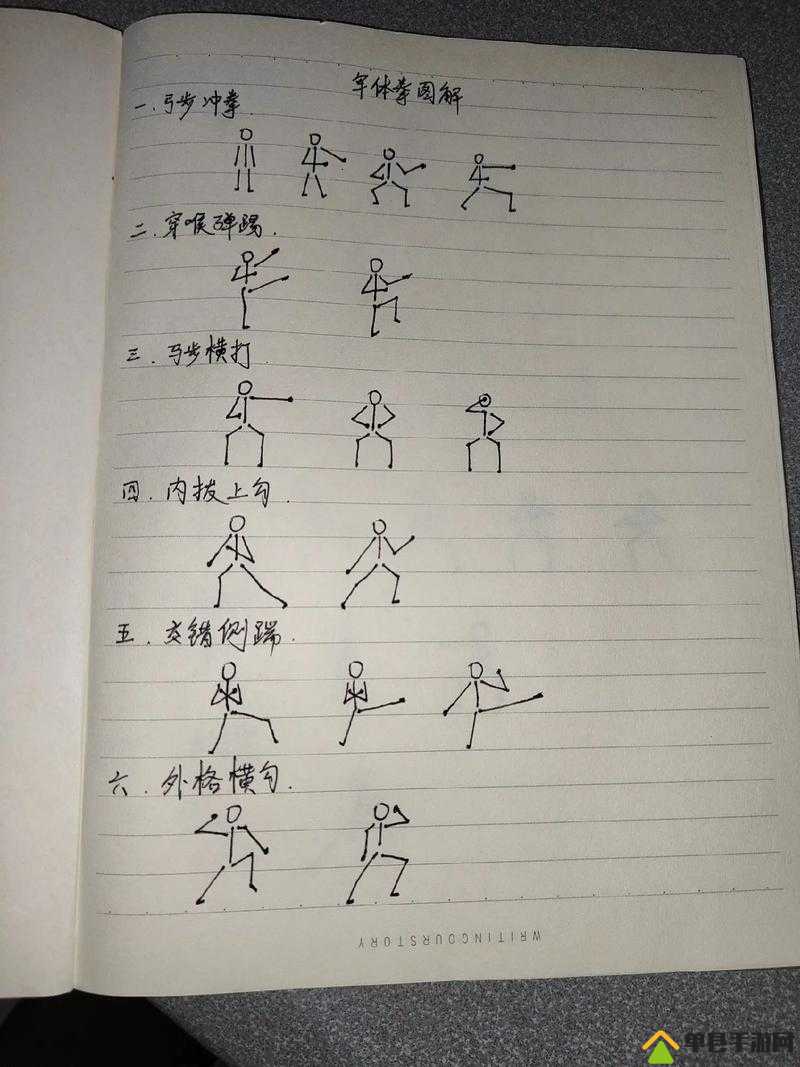 军体拳图解
一.弓步冲拳.
二.穿喉弹踢.
三.马步横打
四.内拨上勾.
五.交错侧踹.
六.外格横勾.
WRITINGOURSTORY
单县手游网